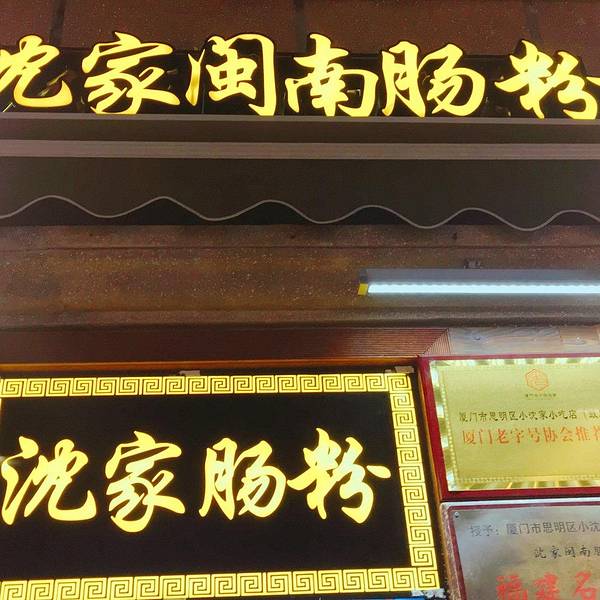 沈家闽南肠粉
沈家肠粉
厦门市思明区小沈家小吃店
厦门老字号协会推荐
授予：厦门市思明区小沈
沈家闽南肠
福建名